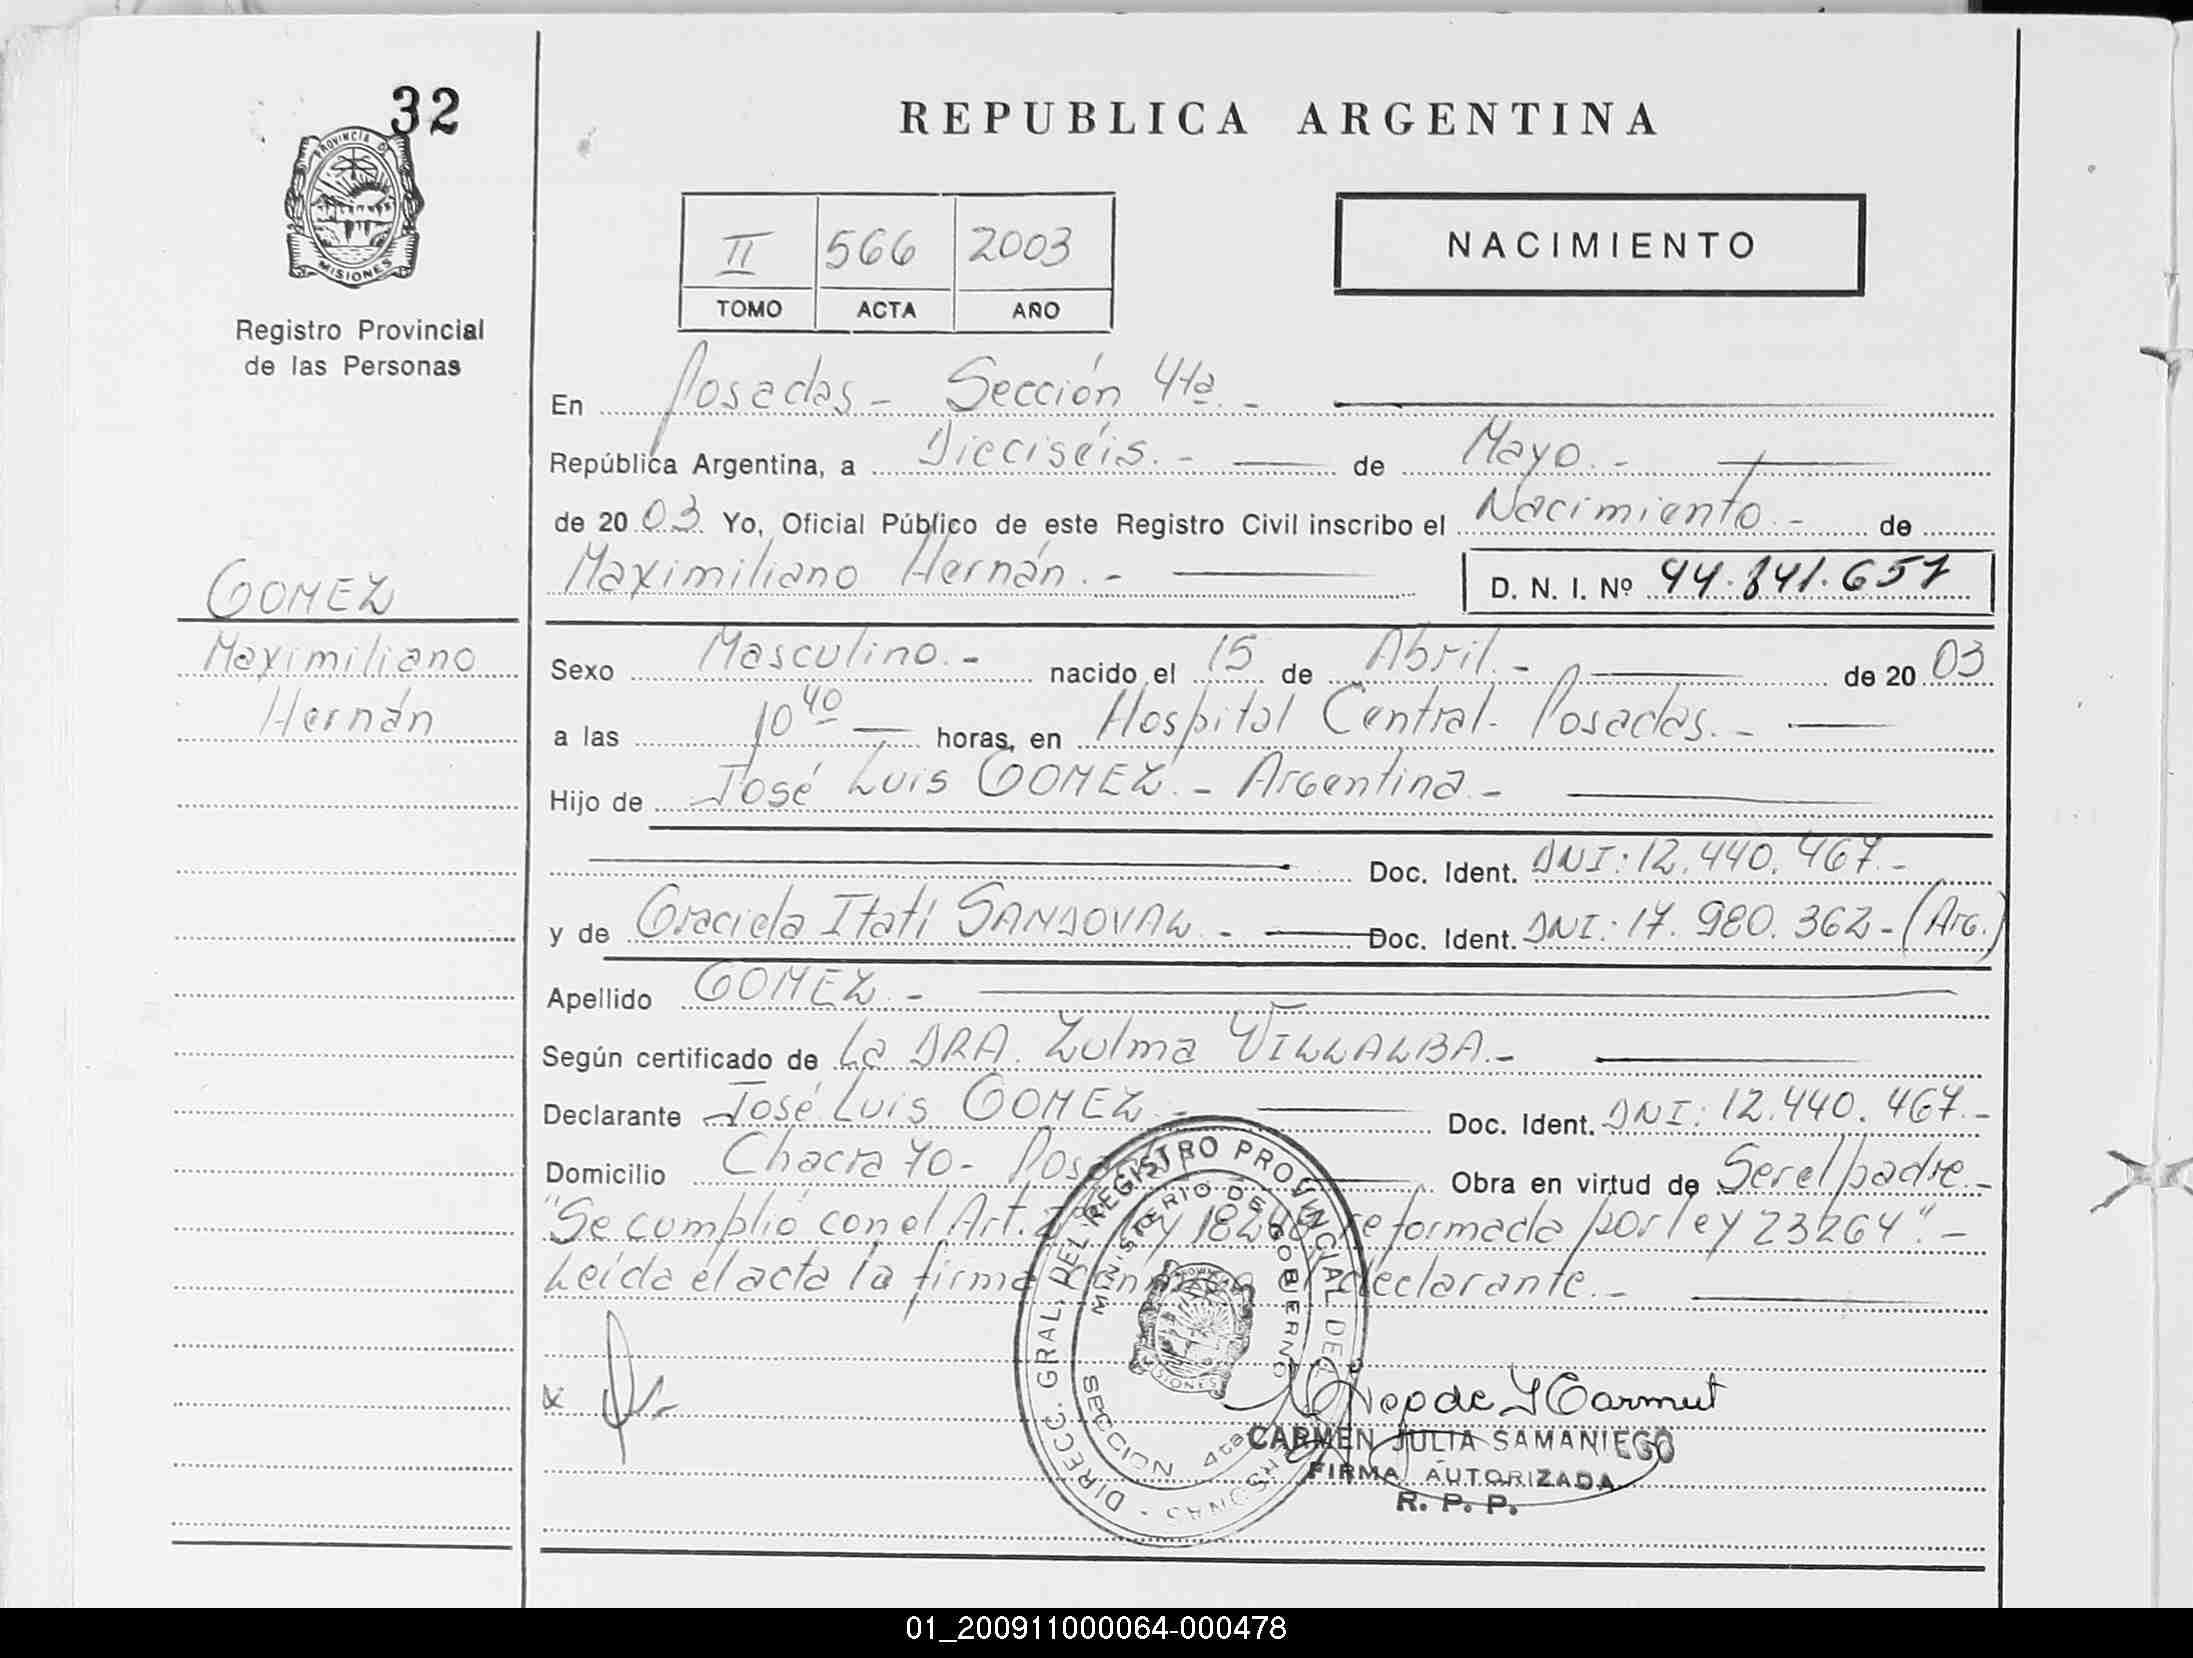 32
PROVINCIA DE
MISIONES
Registro Provincial
de las Personas
GOMEZ
Maximiliano
Hernán
REPUBLICA ARGENTINA
II 566 2003
TOMO ACTA AÑO
NACIMIENTO
En Posadas - Sección 4ta. -
República Argentina, a Dieciséis. - de Mayo. -
de 20 03 Yo, Oficial Público de este Registro Civil inscribo el Nacimiento. - de
Maximiliano Hernán. - D. N. I. Nº
Sexo Masculino. - nacido el 15 de Abril. - de 20 03
a las 10 40 horas, en Hospital Central - Posadas. -
Hijo de José Luis GOMEZ. - Argentina. -
Doc. Ident. DNI: 12.440.467. -
y de Graciela Itatí SANDOVAL. - Doc. Ident. DNI: 17.980.362 - (Arg.)
Apellido GOMEZ. -
Según certificado de La DRA. Zulma VILLALBA. -
Declarante José Luis GOMEZ. - Doc. Ident. DNI: 12.440.467. -
Domicilio Chacra 70 - Obra en virtud de Ser el padre. -
"Se cumplió con el Art. reformada por ley 23264". -
Leída el acta la firma declarante. -
x
DIRECC. GRAL. DEL REGISTRO PROVINCIAL DE
MINISTERIO DE GOBIERNO
MISIONES
SECCION 4ta
CARMEN JULIA SAMANIEGO
FIRMA AUTORIZADA
R. P. P.
01_200911000064-000478